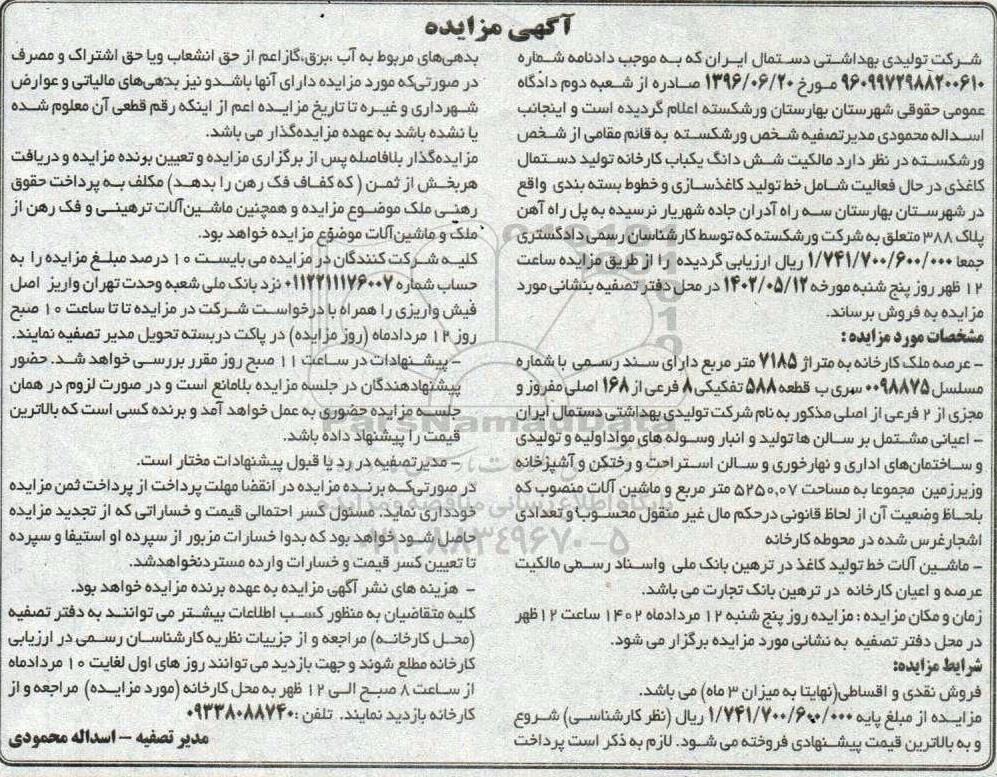 آگهی مزایده
شرکت تولیدی بهداشتی دستمال ایران که به موجب دادنامه شماره
۹۶۰۹۹۷۲۹۸۸۲۰۰۶۱۰ مورخ ۱۳۹۶/۰۶/۲۰ صادره از شعبه دوم دادگاه
عمومی حقوقی شهرستان بهارستان ورشکسته اعلام گردیده است و اینجانب
اسداله محمودی مدیرتصفیه شخص ورشکسته به قائم مقامی از شخص
ورشکسته در نظر دارد مالکیت شش دانگ یکباب کارخانه تولید دستمال
کاغذی در حال فعالیت شامل خط تولید کاغذسازی و خطوط بسته بندی واقع
در شهرستان بهارستان سه راه آدران جاده شهریار نرسیده به پل راه آهن
پلاک ۳۸۸ متعلق به شرکت ورشکسته که توسط کارشناسان رسمی دادگستری
جمعا ۱/۷۴۱/۷۰۰/۶۰۰/۰۰۰ ریال ارزیابی گردیده را از طریق مزایده ساعت
۱۲ ظهر روز پنج شنبه مورخه ۱۴۰۲/۰۵/۱۲ در محل دفتر تصفیه بنشانی مورد
مزایده به فروش برساند.
مشخصات مورد مزایده:
- عرصه ملک کارخانه به متراژ ۷۱۸۵ متر مربع دارای سند رسمی با شماره
مسلسل ۰۰۹۸۸۷۵ سری ب قطعه ۵۸۸ تفکیکی ۸ فرعی از ۱۶۸ اصلی مفروز و
مجزی از ۲ فرعی از اصلی مذکور به نام شرکت تولیدی بهداشتی دستمال ایران
- اعیانی مشتمل بر سالن ها تولید و انبار وسوله های مواداولیه و تولیدی
و ساختمان‌های اداری و نهارخوری و سالن استراحت و رختکن و آشپزخانه
وزیرزمین مجموعا به مساحت ۵۲۵۰,۰۷ متر مربع و ماشین آلات منصوب که
بلحاظ وضعیت آن از لحاظ قانونی درحکم مال غیر منقول محسوب و تعدادی
اشجارغرس شده در محوطه کارخانه
- ماشین آلات خط تولید کاغذ در ترهین بانک ملی واسناد رسمی مالکیت
عرصه و اعیان کارخانه در ترهین بانک تجارت می باشد.
زمان و مکان مزایده : مزایده روز پنج شنبه ۱۲ مردادماه ۱۴۰۲ ساعت ۱۲ ظهر
در محل دفتر تصفیه به نشانی مورد مزایده برگزار می شود.
شرایط مزایده:
فروش نقدی و اقساطی(نهایتا به میزان ۳ ماه) می باشد.
مزایده از مبلغ پایه ۱/۷۴۱/۷۰۰/۶۰۰/۰۰۰ ریال (نظر کارشناسی) شروع
و به بالاترین قیمت پیشنهادی فروخته می شود. لازم به ذکر است پرداخت
بدهی‌های مربوط به آب ،برق،گازاعم از حق انشعاب ویا حق اشتراک و مصرف
در صورتی‌که مورد مزایده دارای آنها باشدو نیز بدهی‌های مالیاتی و عوارض
شهرداری و غیره تا تاریخ مزایده اعم از اینکه رقم قطعی آن معلوم شده
یا نشده باشد به عهده مزایده‌گذار می باشد.
مزایده‌گذار بلافاصله پس از برگزاری مزایده و تعیین برنده مزایده و دریافت
هربخش از ثمن ( که کفاف فک رهن را بدهد) مکلف به پرداخت حقوق
رهنی ملک موضوع مزایده و همچنین ماشین‌آلات ترهینی و فک رهن از
ملک و ماشین‌آلات موضوع مزایده خواهد بود.
کلیه شرکت کنندگان در مزایده می بایست ۱۰ درصد مبلغ مزایده را به
حساب شماره ۰۱۱۲۲۱۱۱۷۶۰۰۷ نزد بانک ملی شعبه وحدت تهران واریز اصل
فیش واریزی را همراه با درخواست شرکت در مزایده تا تا ساعت ۱۰ صبح
روز ۱۲ مردادماه (روز مزایده) در پاکت دربسته تحویل مدیر تصفیه نمایند.
- پیشنهادات در ساعت ۱۱ صبح روز مقرر بررسی خواهد شد. حضور
پیشنهاددهندگان در جلسه مزایده بلامانع است و در صورت لزوم در همان
جلسه مزایده حضوری به عمل خواهد آمد و برنده کسی است که بالاترین
قیمت را پیشنهاد داده باشد.
- مدیرتصفیه در رد یا قبول پیشنهادات مختار است.
در صورتی‌که برنده مزایده در انقضا مهلت پرداخت از پرداخت ثمن مزایده
خودداری نماید. مسئول کسر احتمالی قیمت و خساراتی که از تجدید مزایده
حاصل شود خواهد بود که بدوا خسارات مزبور از سپرده او استیفا و سپرده
تا تعیین کسر قیمت و خسارات وارده مستردنخواهدشد.
- هزینه های نشر آگهی مزایده به عهده برنده مزایده خواهد بود.
کلیه متقاضیان به منظور کسب اطلاعات بیشتر می توانند به دفتر تصفیه
(محل کارخانه) مراجعه و از جزییات نظریه کارشناسان رسمی در ارزیابی
کارخانه مطلع شوند و جهت بازدید می توانند روز های اول لغایت ۱۰ مردادماه
از ساعت ۸ صبح الی ۱۲ ظهر به محل کارخانه (مورد مزایده) مراجعه و از
کارخانه بازدید نمایند. تلفن :۰۹۳۳۸۰۸۸۷۴۰
مدیر تصفیه - اسداله محمودی
ParsNamadData
۰۲۱-۸۸۳۴۹۶۷۰-۵